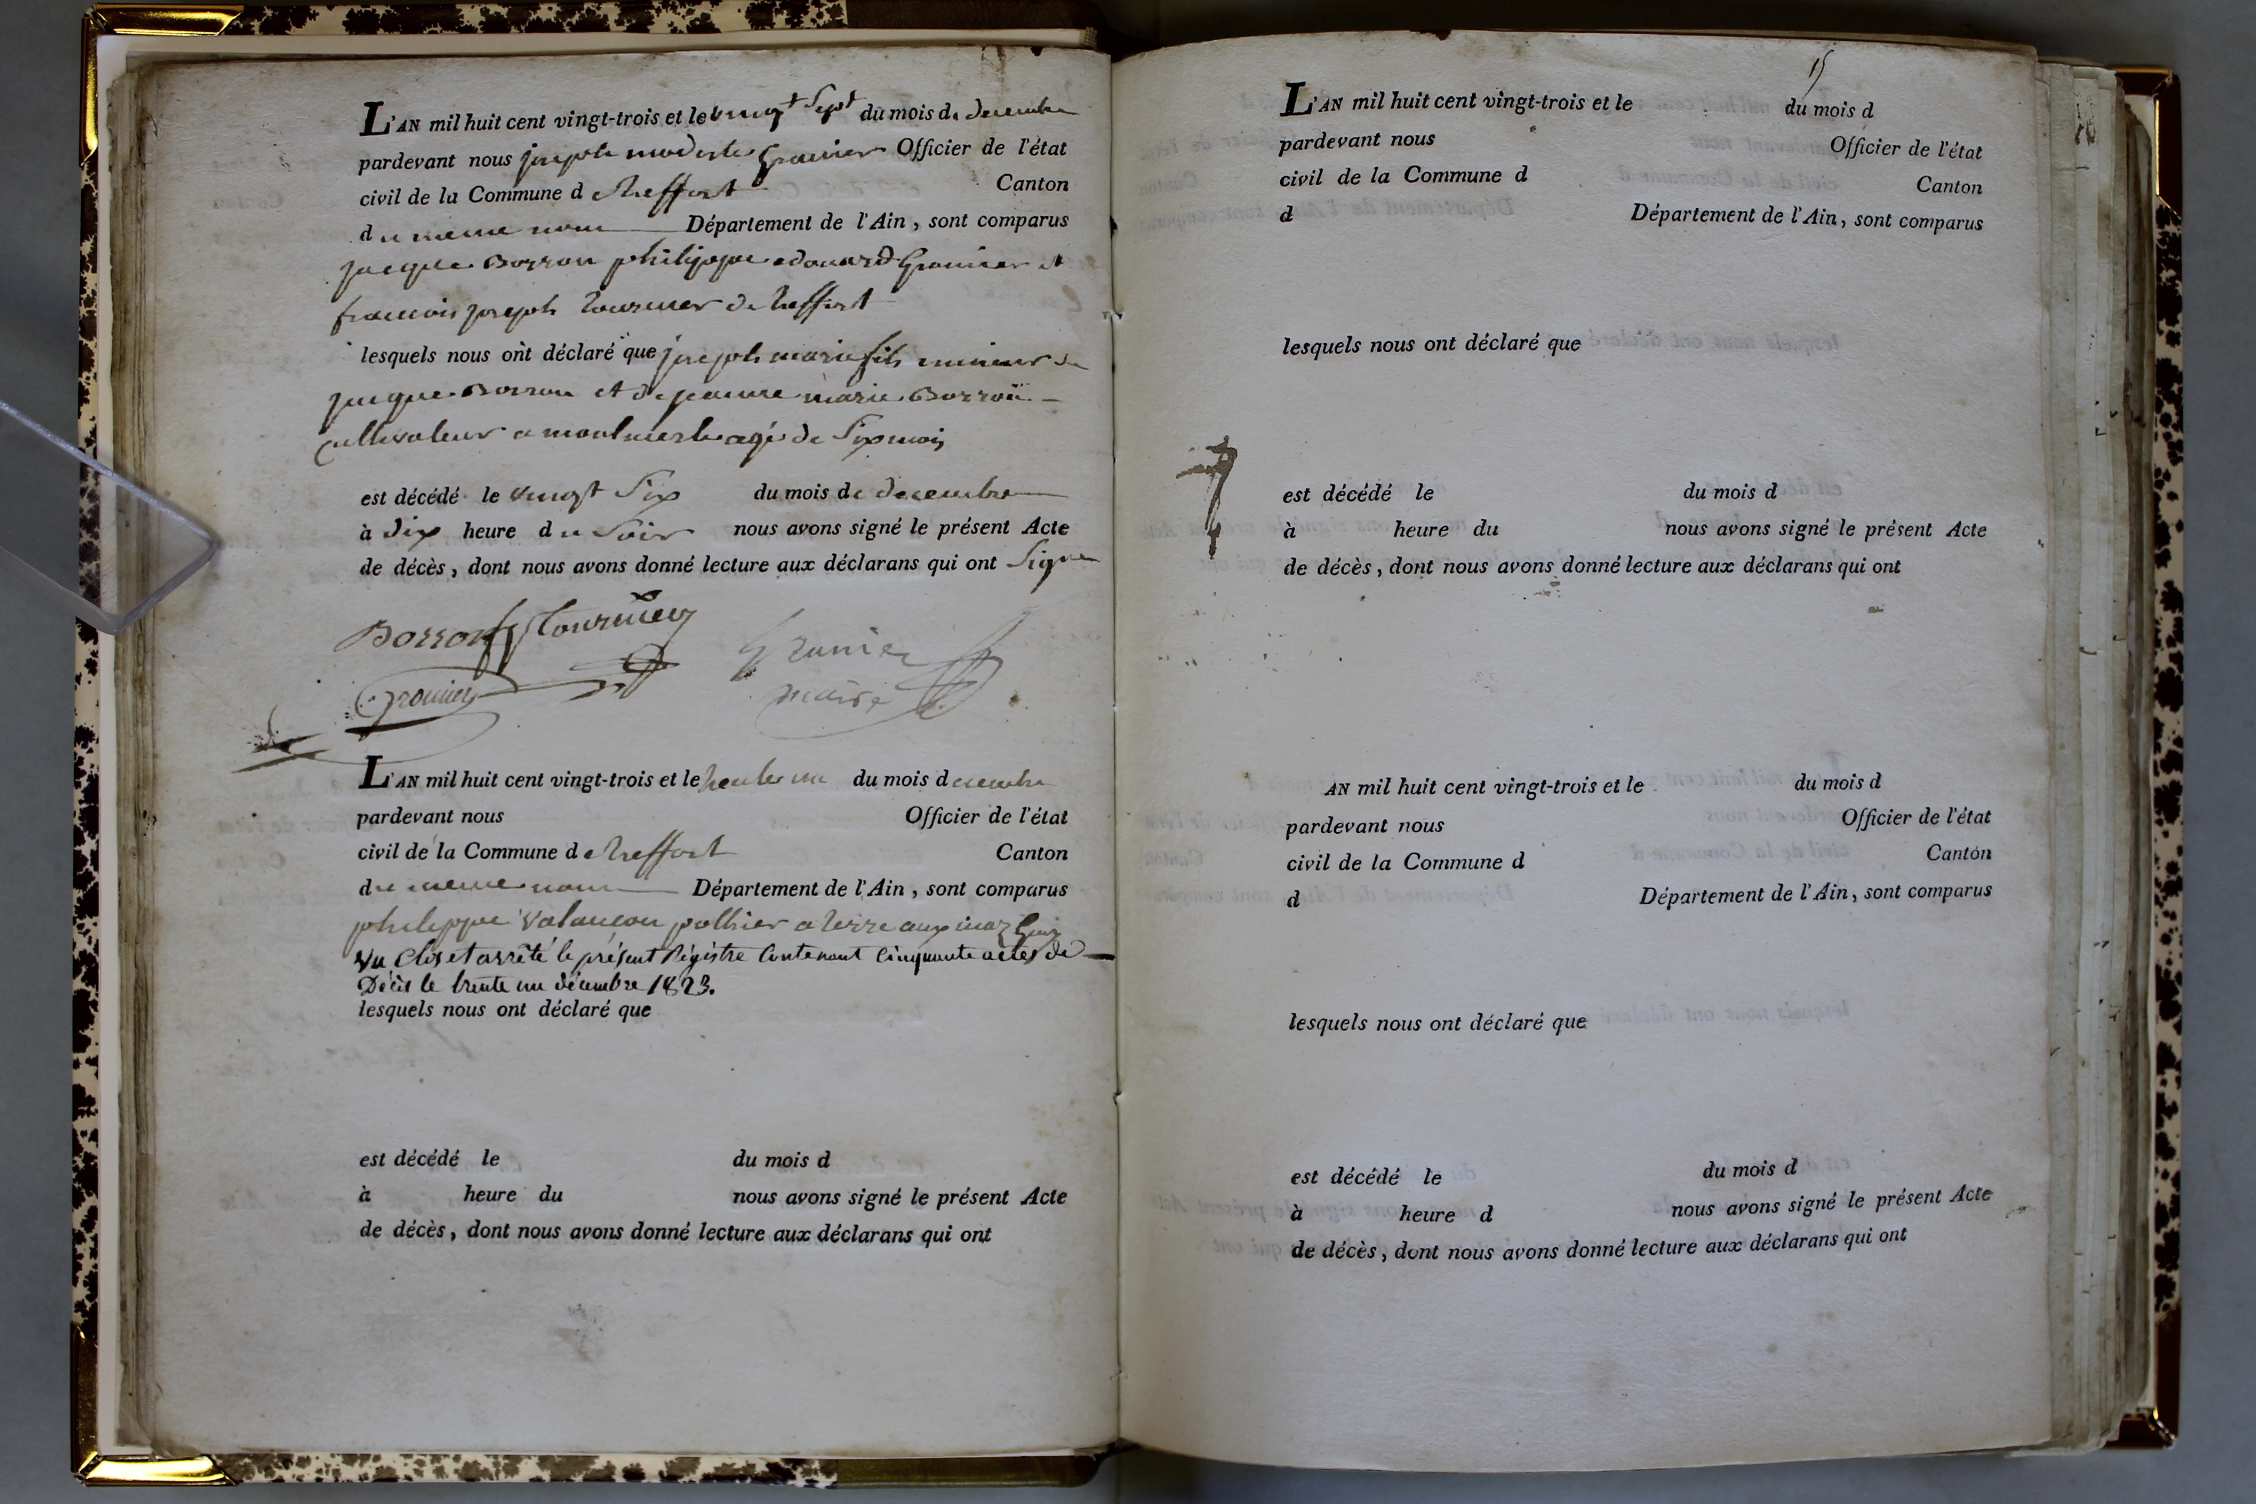 L'AN mil huit cent vingt-trois et le vingt Sept du mois de decembre
pardevant nous joseph modeste Granier Officier de l'état
civil de la Commune de treffort Canton
du meme nom Département de l'Ain, sont comparus
jacque Borron philippe edouard Granier et
francois joseph tournier de treffort
lesquels nous ont déclaré que joseph marie fils mineur de
jacque Borron et de jeanne marie Borron
cultivateur a montmerle agé de Six mois
est décédé le vingt Six du mois de decembre
à dix heure du Soir nous avons signé le présent Acte
de décès, dont nous avons donné lecture aux déclarans qui ont Signe
Borron Tournier Granier
Granier maire
L'AN mil huit cent vingt-trois et le trente un du mois decembre
pardevant nous Officier de l'état
civil de la Commune de treffort Canton
du meme nom Département de l'Ain, sont comparus
philippe Valancon pothier a terre aux
Vu Clos et arrêté le présent Régistre Contenant Cinquante actes de
Décès le trente un décembre 1823.
lesquels nous ont déclaré que
est décédé le du mois d
à heure du nous avons signé le présent Acte
de décès, dont nous avons donné lecture aux déclarans qui ont
15
L'AN mil huit cent vingt-trois et le du mois d
pardevant nous Officier de l'état
civil de la Commune d Canton
d Département de l'Ain, sont comparus
lesquels nous ont déclaré que
est décédé le du mois d
à heure du nous avons signé le présent Acte
de décès, dont nous avons donné lecture aux déclarans qui ont
AN mil huit cent vingt-trois et le du mois d
pardevant nous Officier de l'état
civil de la Commune d Canton
d Département de l'Ain, sont comparus
lesquels nous ont déclaré que
est décédé le du mois d
à heure d nous avons signé le présent Acte
de décès, dont nous avons donné lecture aux déclarans qui ont